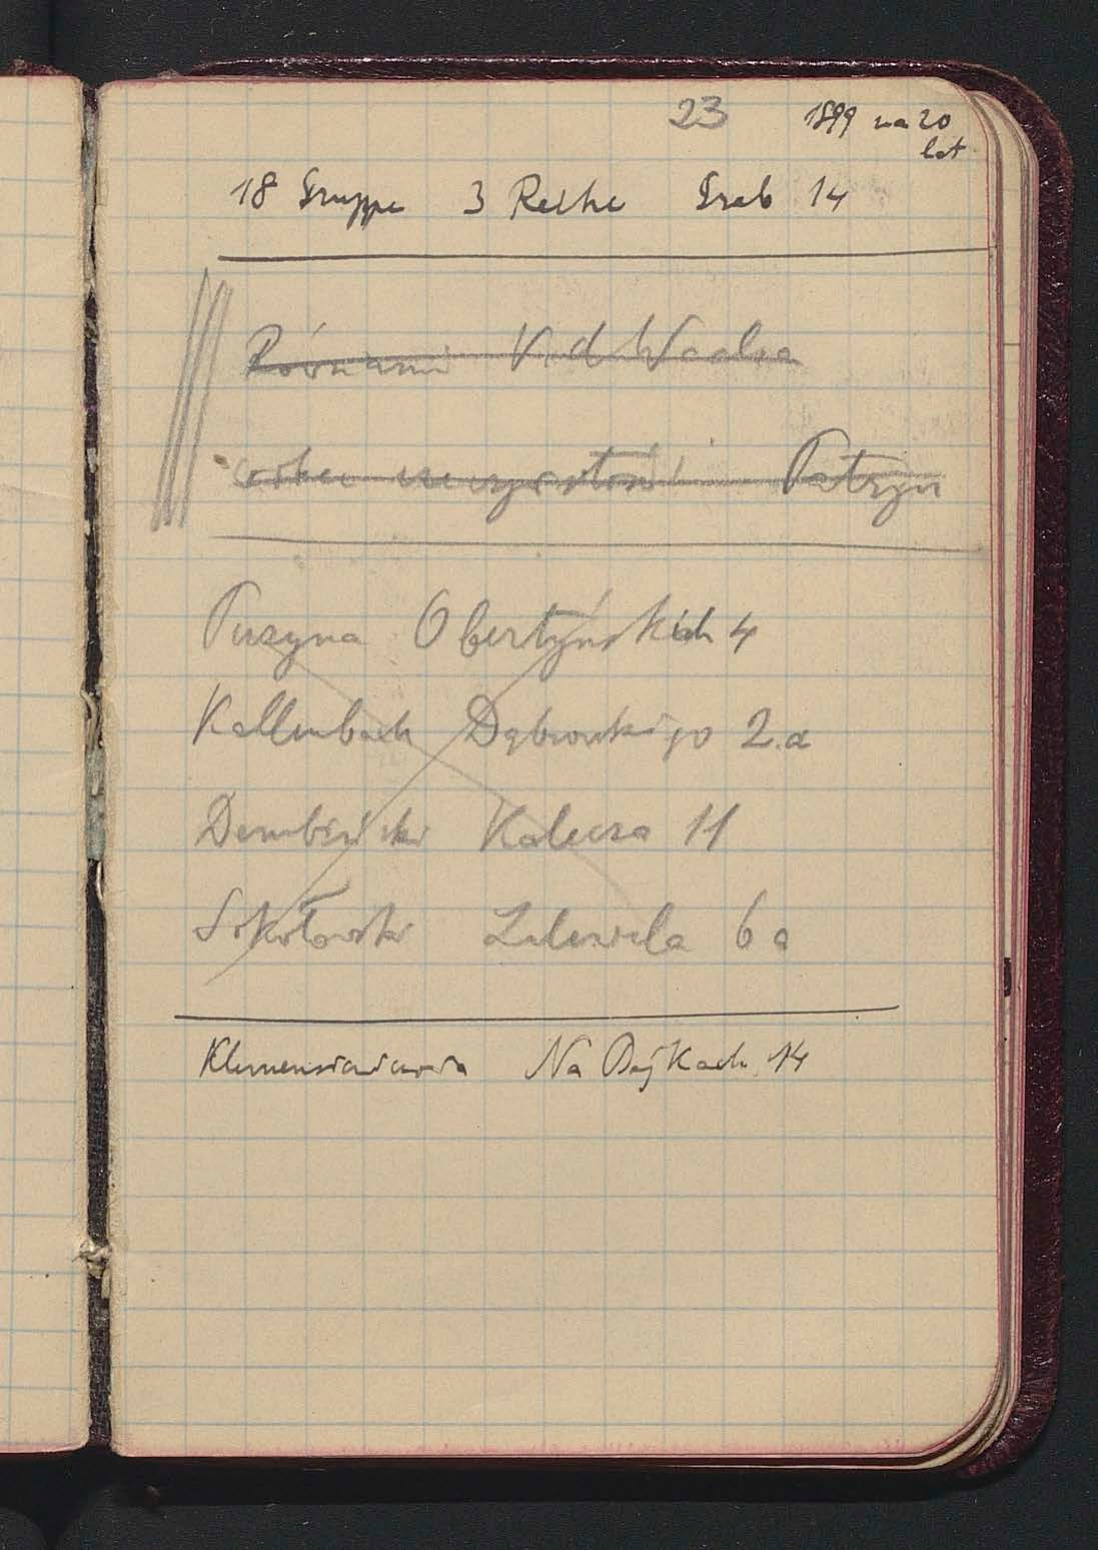 23
1899 na 20
lat
18 Gruppe 3 Reihe Grab 14
Równanie V. d Waalsa
wobec rzeczywistości Patrzyn
Puzyna Obertyńskich 4
Kallenbach Dąbrowskiego 2.a
Dembiński Kalecza 11
Sokołowski Lelewela 6a
Klemensiewiczowa Na Bajkach 14